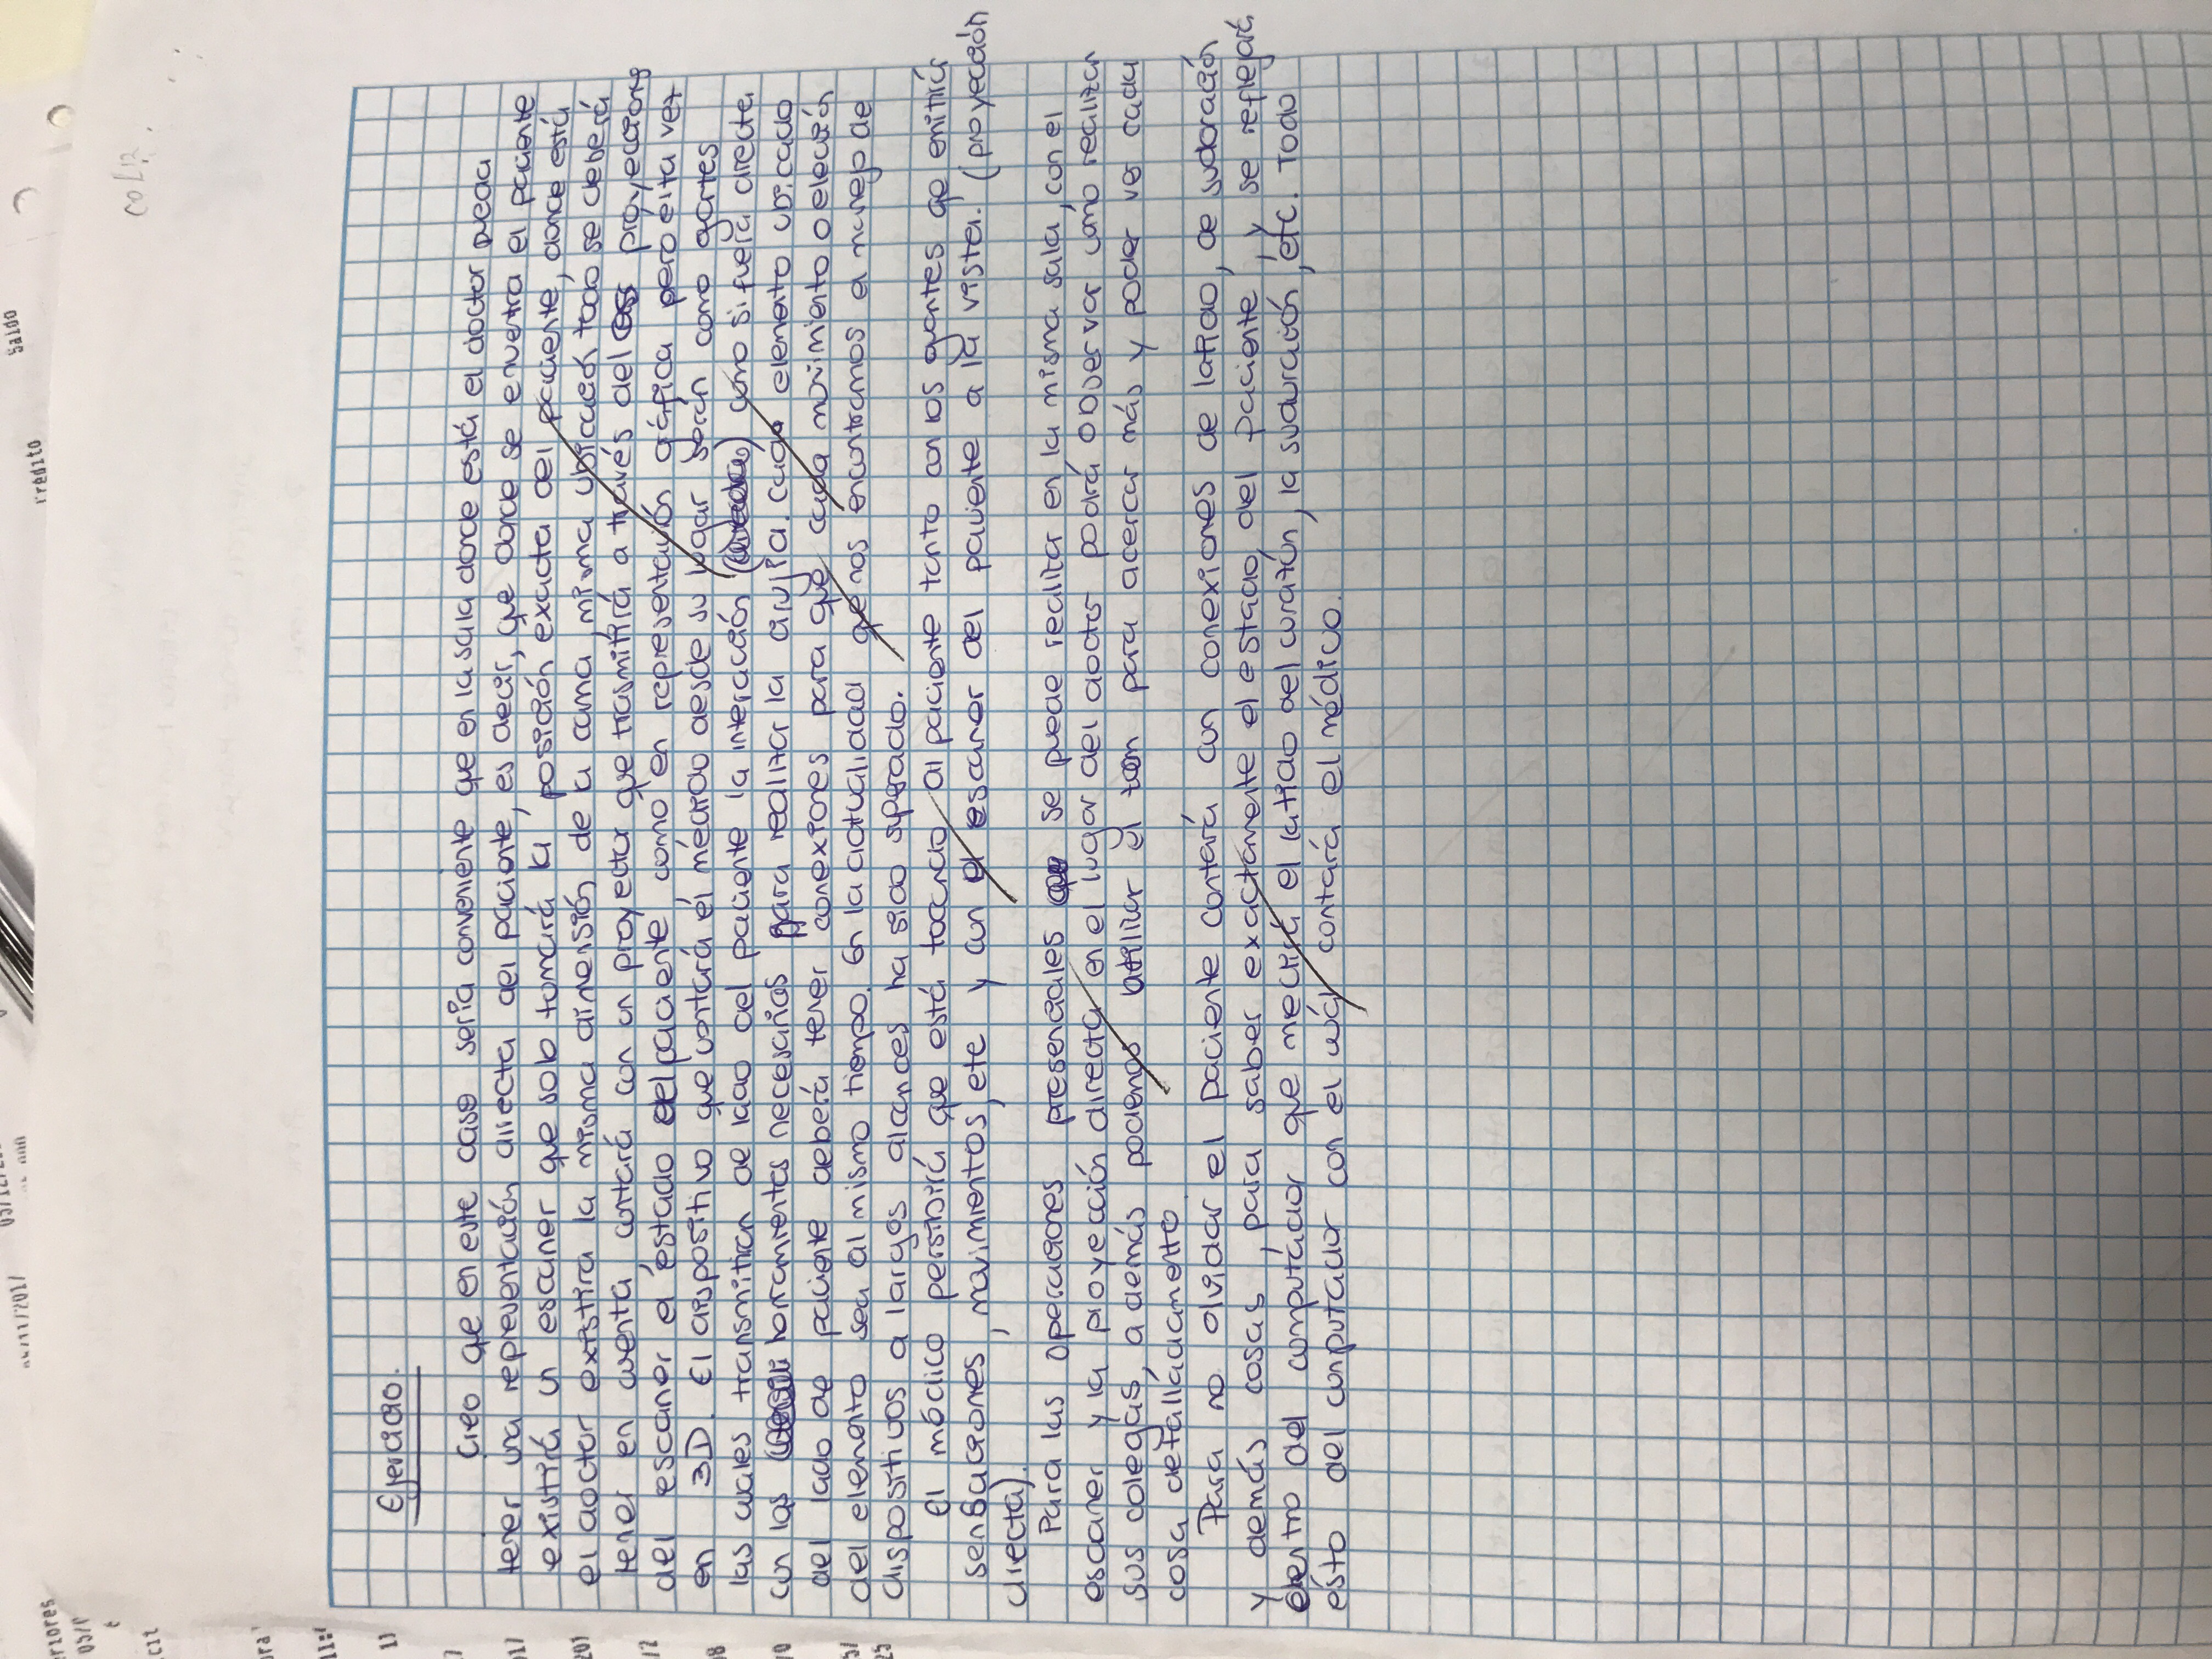 05/11/2017
Saldo
Crédito
eriores
Ejercicio.
Creo que en este caso sería conveniente que en la sala donde está el doctor pueda
tener una representación directa del paciente, es decir, que donde se encuentra el paciente
existirá un escaner que solo tomará la posición exacta del paciente, donde está
el doctor existira la misma dimensión de la cama, misma ubicación todo se deberá
tener en cuenta, contará con un proyector que trasmitirá a través del proyecciones
del escaner el estado del paciente, como en representación gráfica pero esta vez
en 3D. El dispositivo que contará el médico desde su lugar serán como gantes
las cuales transmitiran de lado del paciente la interacción como si fuera directa
con las herramientas necesarias para realizar la cirujía. cada elemento ubicado
del lado de paciente deberá tener conexiones para que cada movimiento o elección
del elemento sea al mismo tiempo. En la actualidad que nos encontramos el manejo de
dispositivos a largos alcances ha sido superado.
El médico persibirá que está tocando al paciente tanto con los guantes que emitirá
sensaciones, movimientos, etc y con el escaner del paciente a la vista. (proyección
directa).
Para las operaciones presenciales se puede realizar en la misma sala, con el
escaner y la proyección directa en el lugar del doctor podrá observar como realizan
sus colegas, además podemos utilizar el zoom para acercar más y poder ver cada
cosa detalladamente.
Para no olvidar el paciente contará con conexiones de latido, de sudoración
y demás cosas, para saber exactamente el estado del paciente, y se reflejará
dentro del computador que medirá el latido del corazón, la sudoración, etc. Todo
esto del computador con el cuál contará el médico.